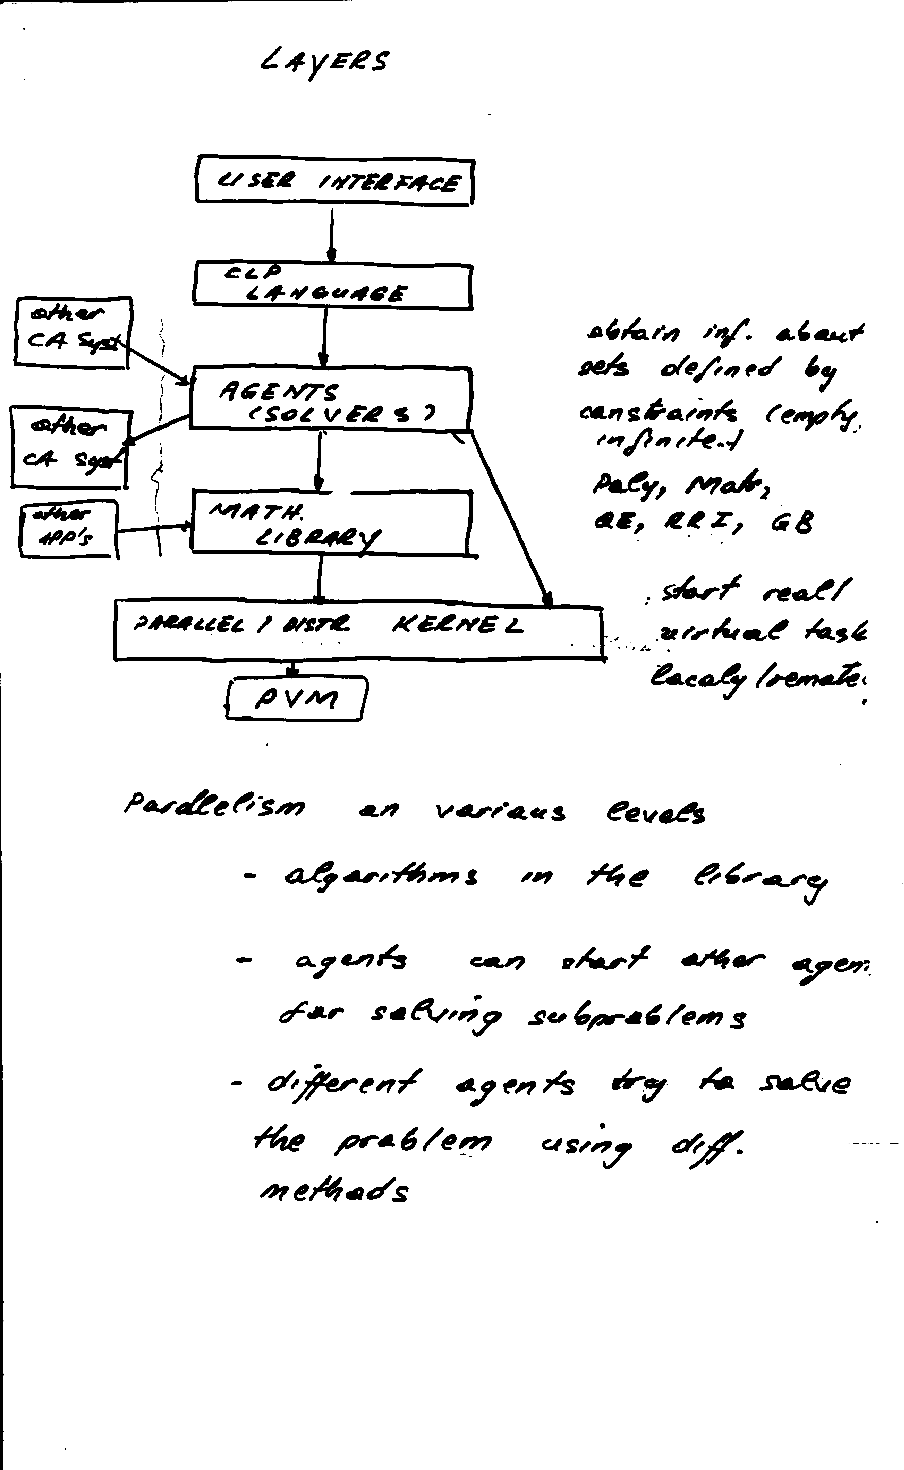 LAYERS
USER INTERFACE
CLP
LANGUAGE
other
CA Syst
AGENTS
(SOLVERS)
other
CA Syst
MATH.
LIBRARY
other
APP's
PARALLEL / DISTR KERNEL
PVM
obtain inf. about
sets defined by
constraints (empty,
infinite..)
Poly, Matr,
QE, RRI, GB
start real/
virtual task
localy/remote.
Parallelism on various levels
- algorithms in the library
- agents can start other agen
for solving subproblems
- different agents try to solve
the problem using diff.
methods